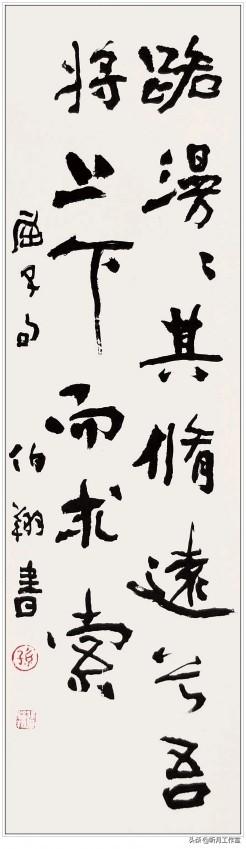 路漫〻其脩遠兮吾
將上下而求索
屈子句
伯翔書
孫
头条@昕月工作室